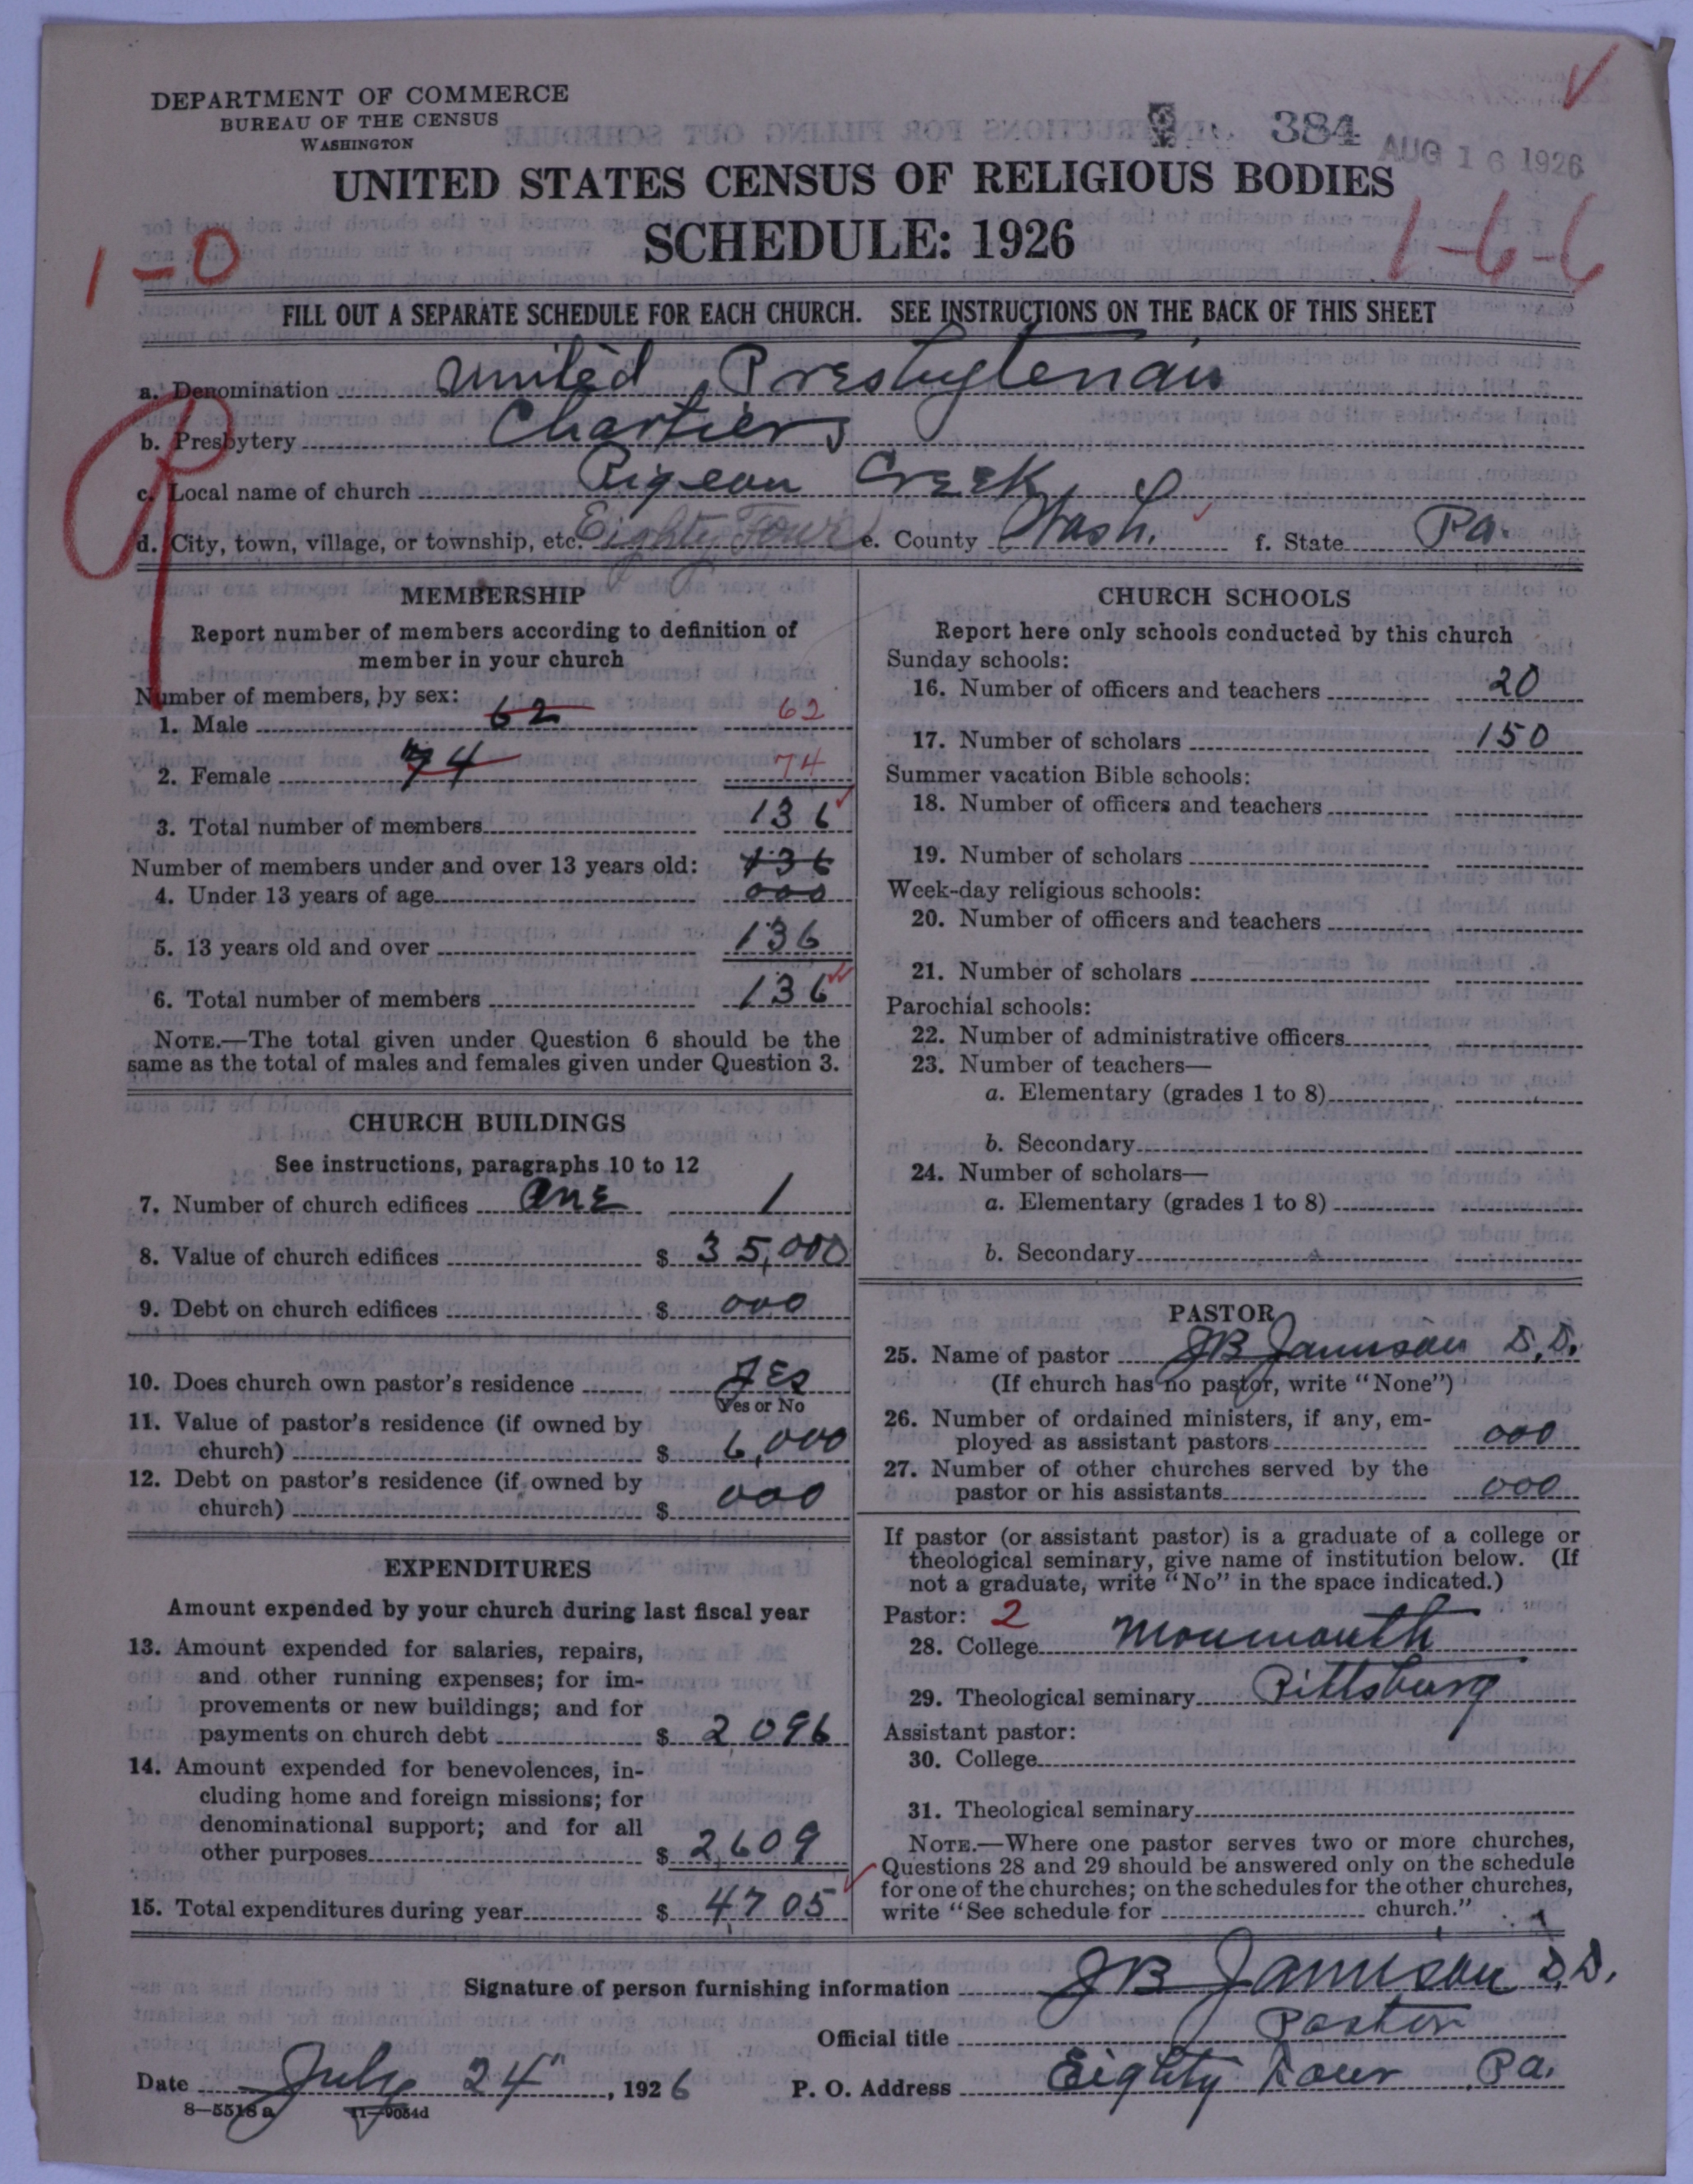 DEPARTMENT OF COMMERCE
BUREAU OF THE CENSUS
WASHINGTON
384
AUG 16 1926
UNITED STATES CENSUS OF RELIGIOUS BODIES
SCHEDULE: 1926
1-0
1-6-6
FILL OUT A SEPARATE SCHEDULE FOR EACH CHURCH. SEE INSTRUCTIONS ON THE BACK OF THIS SHEET
a. Denomination United Presbyterian
b. Presbytery Chartiers
c. Local name of church Pigeon Creek
d. City, town, village, or township, etc. Eighty Four e. County Wash. f. State Pa.
MEMBERSHIP
Report number of members according to definition of
member in your church
Number of members, by sex:
1. Male 62 62
2. Female 74 74
3. Total number of members 136
Number of members under and over 13 years old: 136
4. Under 13 years of age 000
5. 13 years old and over 136
6. Total number of members 136
NOTE.—The total given under Question 6 should be the
same as the total of males and females given under Question 3.
CHURCH BUILDINGS
See instructions, paragraphs 10 to 12
7. Number of church edifices one 1
8. Value of church edifices $ 35,000
9. Debt on church edifices $ 000
10. Does church own pastor's residence yes
Yes or No
11. Value of pastor's residence (if owned by
church) $ 6,000
12. Debt on pastor's residence (if owned by
church) $ 000
EXPENDITURES
Amount expended by your church during last fiscal year
13. Amount expended for salaries, repairs,
and other running expenses; for im-
provements or new buildings; and for
payments on church debt $ 2,096
14. Amount expended for benevolences, in-
cluding home and foreign missions; for
denominational support; and for all
other purposes $ 2,609
15. Total expenditures during year $ 4705
CHURCH SCHOOLS
Report here only schools conducted by this church
Sunday schools:
16. Number of officers and teachers 20
17. Number of scholars 150
Summer vacation Bible schools:
18. Number of officers and teachers
19. Number of scholars
Week-day religious schools:
20. Number of officers and teachers
21. Number of scholars
Parochial schools:
22. Number of administrative officers
23. Number of teachers—
a. Elementary (grades 1 to 8)
b. Secondary
24. Number of scholars—
a. Elementary (grades 1 to 8)
b. Secondary
PASTOR
25. Name of pastor JB Jamison D.D.
(If church has no pastor, write "None")
26. Number of ordained ministers, if any, em-
ployed as assistant pastors 000
27. Number of other churches served by the
pastor or his assistants 000
If pastor (or assistant pastor) is a graduate of a college or
theological seminary, give name of institution below. (If
not a graduate, write "No" in the space indicated.)
Pastor: 2
28. College Monmouth
29. Theological seminary Pittsburg
Assistant pastor:
30. College
31. Theological seminary
NOTE.—Where one pastor serves two or more churches,
Questions 28 and 29 should be answered only on the schedule
for one of the churches; on the schedules for the other churches,
write "See schedule for church."
Signature of person furnishing information JB Jamison D.D.
Official title Pastor
Date July 24", 1926 P. O. Address Eighty Four Pa.
8—5518a 11—9054d